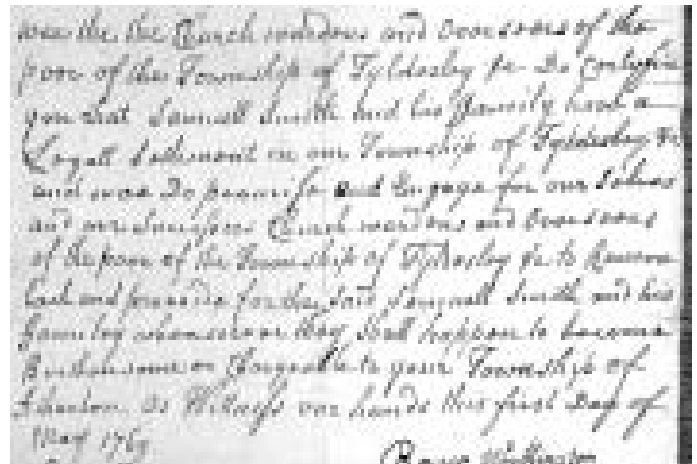 wee the the Church wardens and overseers of the
poor of the Township of Tyldesley &c Do Certifie
you that Samuell Smith and his Family have a
Legall Settlement in our Township of Tyldesley &c
and wee Do promise and Engage for our Selves
and our Successors Church wardens and overseers
of the poor of the Township of Tyldesley &c to
back and provide for the said Samuell Smith and his
Family whensoever they shall happen to become
Burdensome or Chargeable to your Township of
As Witness our hands this first Day of
May